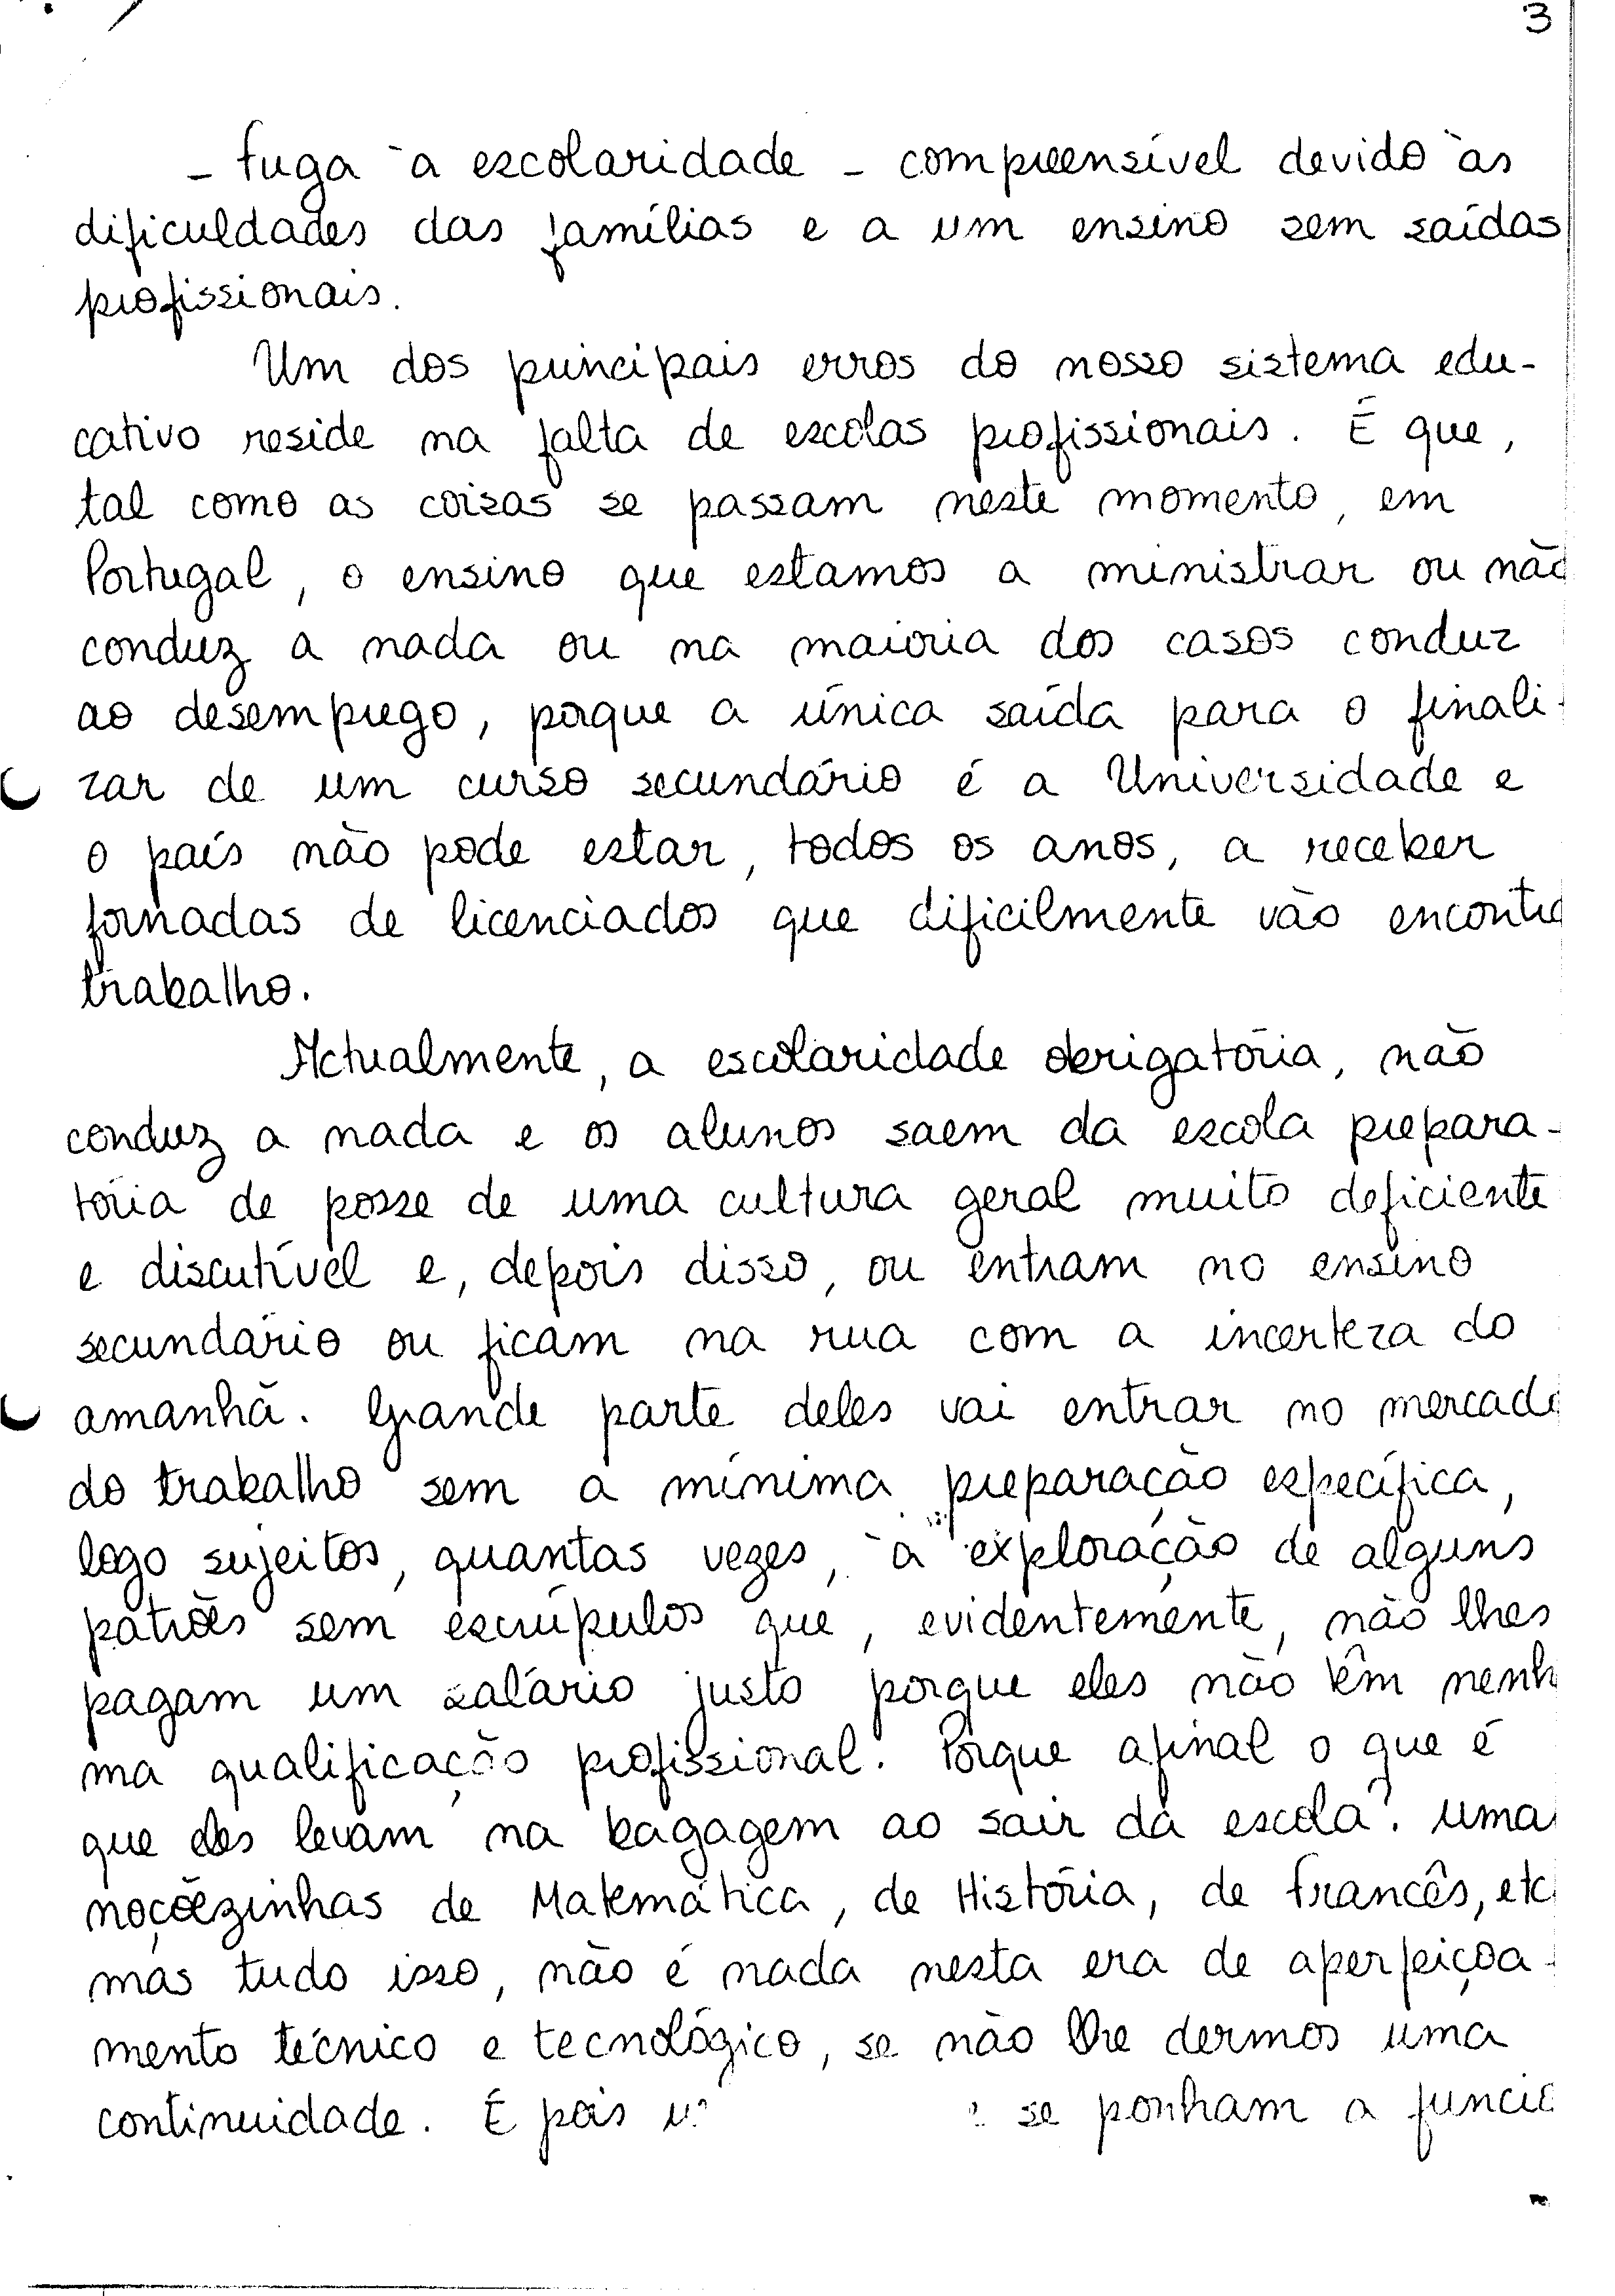 3
- Fuga à escolaridade - compreensível devido às
dificuldades das famílias e a um ensino sem saídas
profissionais.
Um dos principais erros do nosso sistema edu-
cativo reside na falta de escolas profissionais. É que,
tal como as coisas se passam neste momento, em
Portugal, o ensino que estamos a ministrar ou não
conduz a nada ou na maioria dos casos conduz
ao desemprego, porque a única saída para o finali-
zar de um curso secundário é a Universidade e
o país não pode estar, todos os anos, a receber
fornadas de licenciados que dificilmente vão encontra
trabalho.
Actualmente, a escolaridade obrigatória, não
conduz a nada e os alunos saem da escola prepara-
tória de posse de uma cultura geral muito deficiente
e discutível e, depois disso, ou entram no ensino
secundário ou ficam na rua com a incerteza do
amanhã. Grande parte deles vai entrar no mercado
do trabalho sem a mínima preparação específica,
logo sujeitos, quantas vezes, à exploração de alguns
patrões sem escrúpulos que, evidentemente, não lhes
pagam um salário justo porque eles não têm nenh
ma qualificação profissional. Porque afinal o que é
que eles levam na bagagem ao sair da escola? Uma
noçõezinhas de Matemática, de História, de Francês, etc
mas tudo isso, não é nada nesta era de aperfeiçoa-
mento técnico e tecnológico, se não lhe dermos uma
continuidade. É pois se ponham a funcio